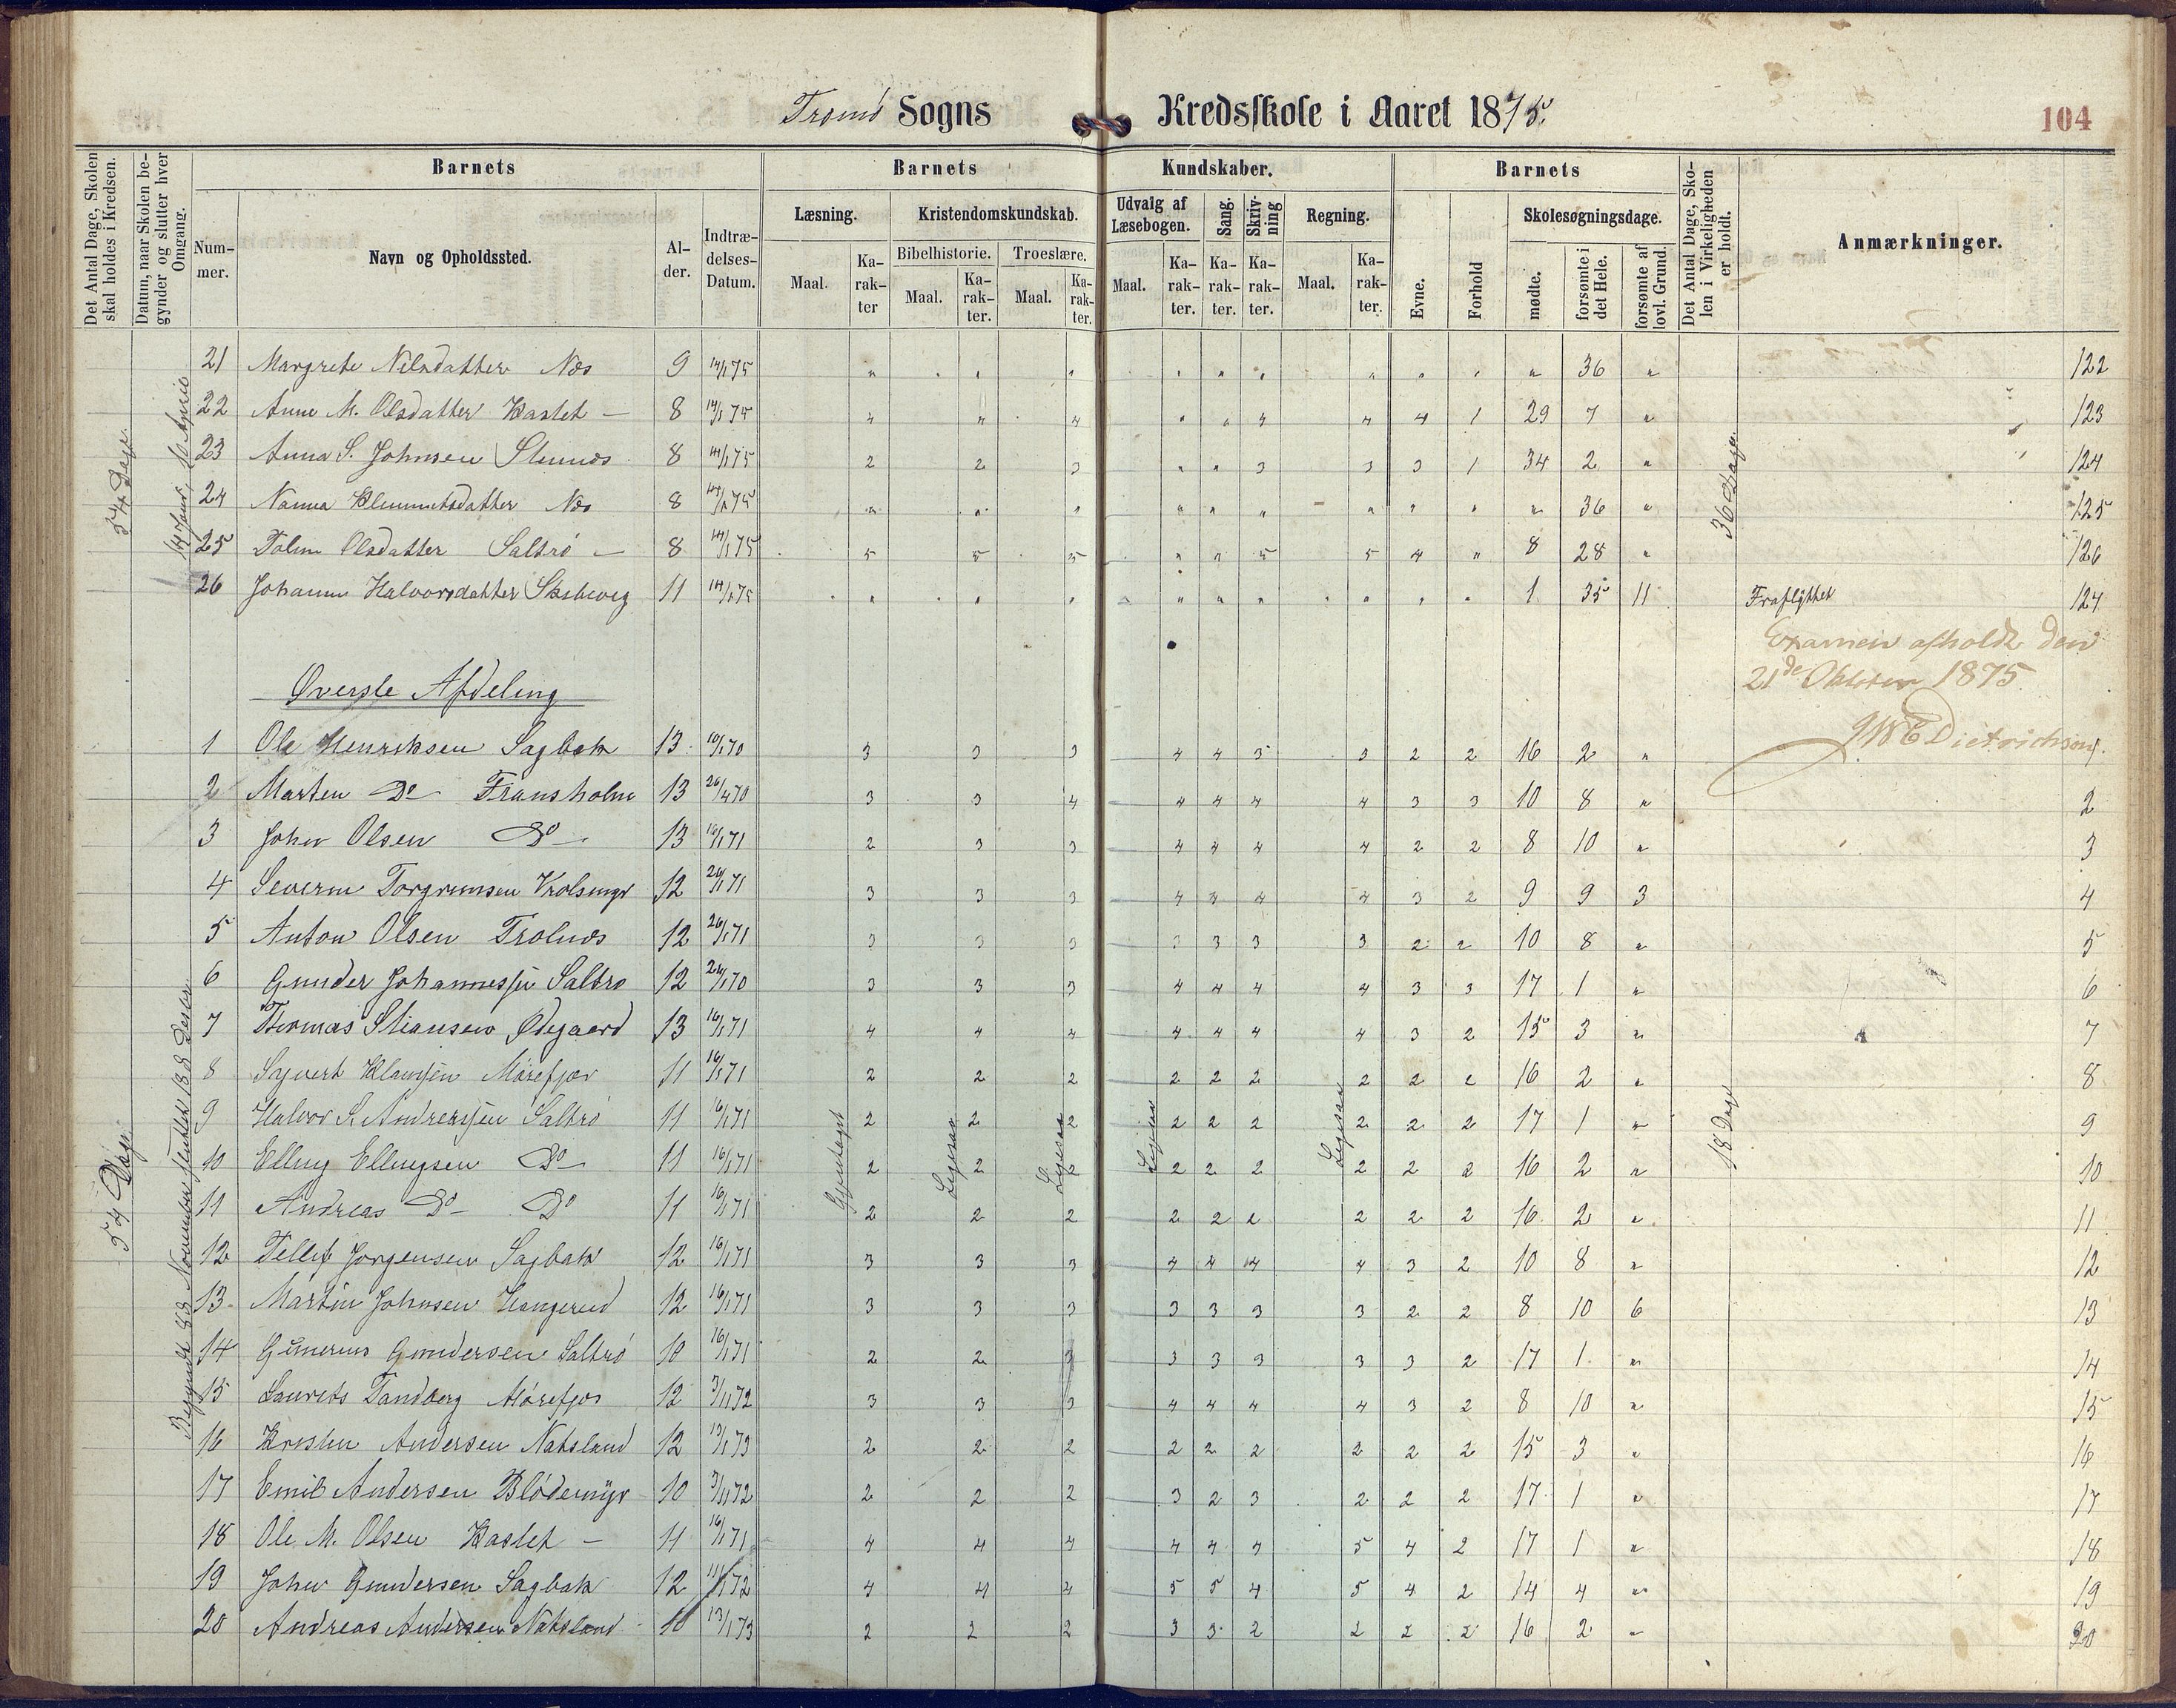 Tromö Sogns Kredsskole i Aaret 1875.
104
Det Antal Dage, Skolen skal holdes i Kredsen.
Datum, naar Skolen begynder og slutter hver Omgang.
Barnets
Barnets
Kundskaber.
Barnets
Det Antal Dage, Skolen i Virkeligheden er holdt.
Anmærkninger.
Nummer.
Navn og Opholdssted.
Alder.
Indtrædelses-Datum.
Læsning.
Kristendomskundskab.
Udvalg af Læsebogen.
Sang.
Skrivning
Regning.
Evne.
Forhold
Skolesøgningsdage.
Bibelhistorie.
Troeslære.
Maal.
Karakter
Maal.
Karakter.
Maal.
Karakter.
Maal.
Karakter.
Karakter.
Karakter.
Maal.
Karakter.
mødte.
forsømte i det Hele.
forsømte af lovl. Grund.
54 Dage.
36 Dage.
21 Margrete Nilsdatter Næs 9 14/1 75 " " " " " " " " " " 36 " 122
22 Anne M. Olsdatter Hastet — 8 14/1 75 " " " " " " " 4 1 29 7 " 123
23 Anna S. Johnsen 8 14/1 75 2 2 3 " " 3 3 3 1 34 2 " 124
24 Nanna Klemmetsdatter Næs 8 14/1 75 " " " " " " " " " " 36 " 125
25 Olsdatter Saltrö — 8 14/1 75 5 5 5 " " 5 5 4 " 8 28 " 126
26 Johanne Halvorsdatter 11 14/1 75 " " " " " " " " " 1 35 11 Fraflyttet 127
Examen afholdt den
21de Oktober 1875
Dietrichson.
Øverste Afdeling
1 Ole Henriksen Sagbak 13 10/1 70 3 3 3 4 4 3 3 2 2 16 2 "
2 Marten Do Fransholm 13 26/4 70 3 3 4 4 4 4 4 3 3 10 8 " 2
3 John Olsen Do 13 16/1 71 2 3 3 4 4 4 4 2 2 8 10 " 3
4 Severin Torgrimsen 12 26/1 71 3 3 3 4 4 4 4 3 2 9 9 3 4
5 Anton Olsen Trolnæs 12 26/1 71 3 3 3 3 3 3 3 2 2 10 8 " 5
6 Gunder Johannessen Saltrö 12 24/1 70 3 3 3 4 4 4 4 3 3 17 1 " 6
7 Thomas Stiansen Ødegaard 13 16/1 71 4 4 4 4 4 4 4 3 2 15 3 " 7
8 Syvert Klausen Mörefjær 11 16/1 71 2 2 2 2 2 2 2 2 2 16 2 " 8
9 Halvor S. Andreassen Saltrö 11 16/1 71 2 2 2 2 2 2 2 2 2 17 1 " 9
10 Elling Ellingsen Do 11 16/1 71 2 2 2 2 2 2 2 2 2 16 2 " 10
11 Andreas Do Do 11 16/1 71 2 2 2 2 2 2 2 2 2 16 2 " 11
12 Tellef Jörgensen Sagbak 12 16/1 71 3 3 3 4 4 4 4 3 2 10 8 " 12
13 Martin Johnsen 12 16/1 71 3 3 3 3 3 3 3 2 2 8 10 6 13
14 Gunerius Gundersen Saltrö 10 16/1 71 2 2 3 3 3 3 3 3 2 17 1 " 14
15 Laurits Tandberg Mörefjær 12 3/11 72 3 3 3 4 4 4 4 3 2 8 10 " 15
16 Kristen Andersen Natsland 12 13/1 73 2 2 2 2 2 2 2 2 2 15 3 " 16
17 Emil Andersen Blödemyr 10 3/11 72 2 2 2 3 2 3 2 2 2 17 1 " 17
18 Ole M. Olsen Hastet — 11 16/1 71 4 4 4 4 4 4 5 4 2 17 1 " 18
19 John Gundersen Sagbak 12 11/1 72 4 4 4 5 5 4 5 4 2 14 4 " 19
20 Andreas Andersen Natsland 10 13/1 73 2 2 2 3 3 2 2 2 2 16 2 " 20
54 Dage.
Gjentaget
Ligesaa
Ligesaa
Ligesaa
Ligesaa
18 Dage